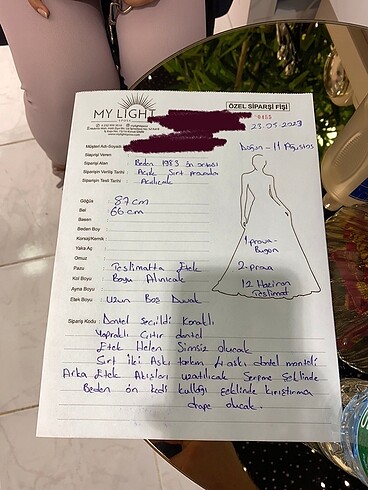 MY LIGHT
ÖZEL SİPARİŞ FİŞİ
0455
23.05.2023
Müşteri Adı-Soyadı
Düğün - 11 Ağustos
Siparişi Veren:
Siparişi Alan : Beden 1983 ön ortası
Siparişin Veriliş Tarihi : Açık Sırt provada
Siparişin Teslim Tarihi : Açılacak
Göğüs : 87 cm
Bel : 66 cm
Basen :
Beden Boy :
Korsaj/Kemik :
Yaka Aç. :
Omuz :
Pazu : Teslimatta Etek
Kol Boyu : Boyu Alınıcak
Ayna Boyu :
Etek Boyu : Uzun Boş Duvak
1-prova-
Bugün
2-prova
12 Haziran
Teslimat
Sipariş Kodu : Dantel Seçildi Kanatlı
Yapraklı Çıtır dantel
Etek Helen Simsiz olucak
Sırt İki Askı takım dantel
Arka Etek Akışları uzatılıcak Serpme Şeklinde
Beden ön kedi kulağı şeklinde kırıştırma
drape olucak.